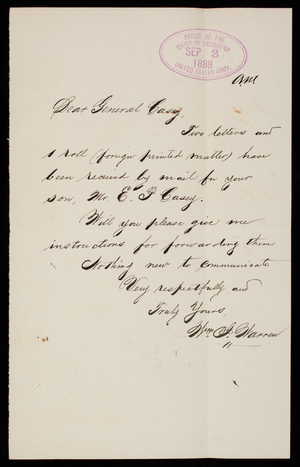 OFFICE OF THE
CHIEF OF ENGINEERS
SEP 3
1888
UNITED STATES ARMY.
AM
Dear General Casey,
Two letters and
1 roll (foreign printed matter) have
been received by mail for your
son, Mr. E. P. Casey.
Will you please give me
instructions for forwarding them
Nothing new to communicate
Very respectfully and
Truly Yours,
Wm. J. Warren